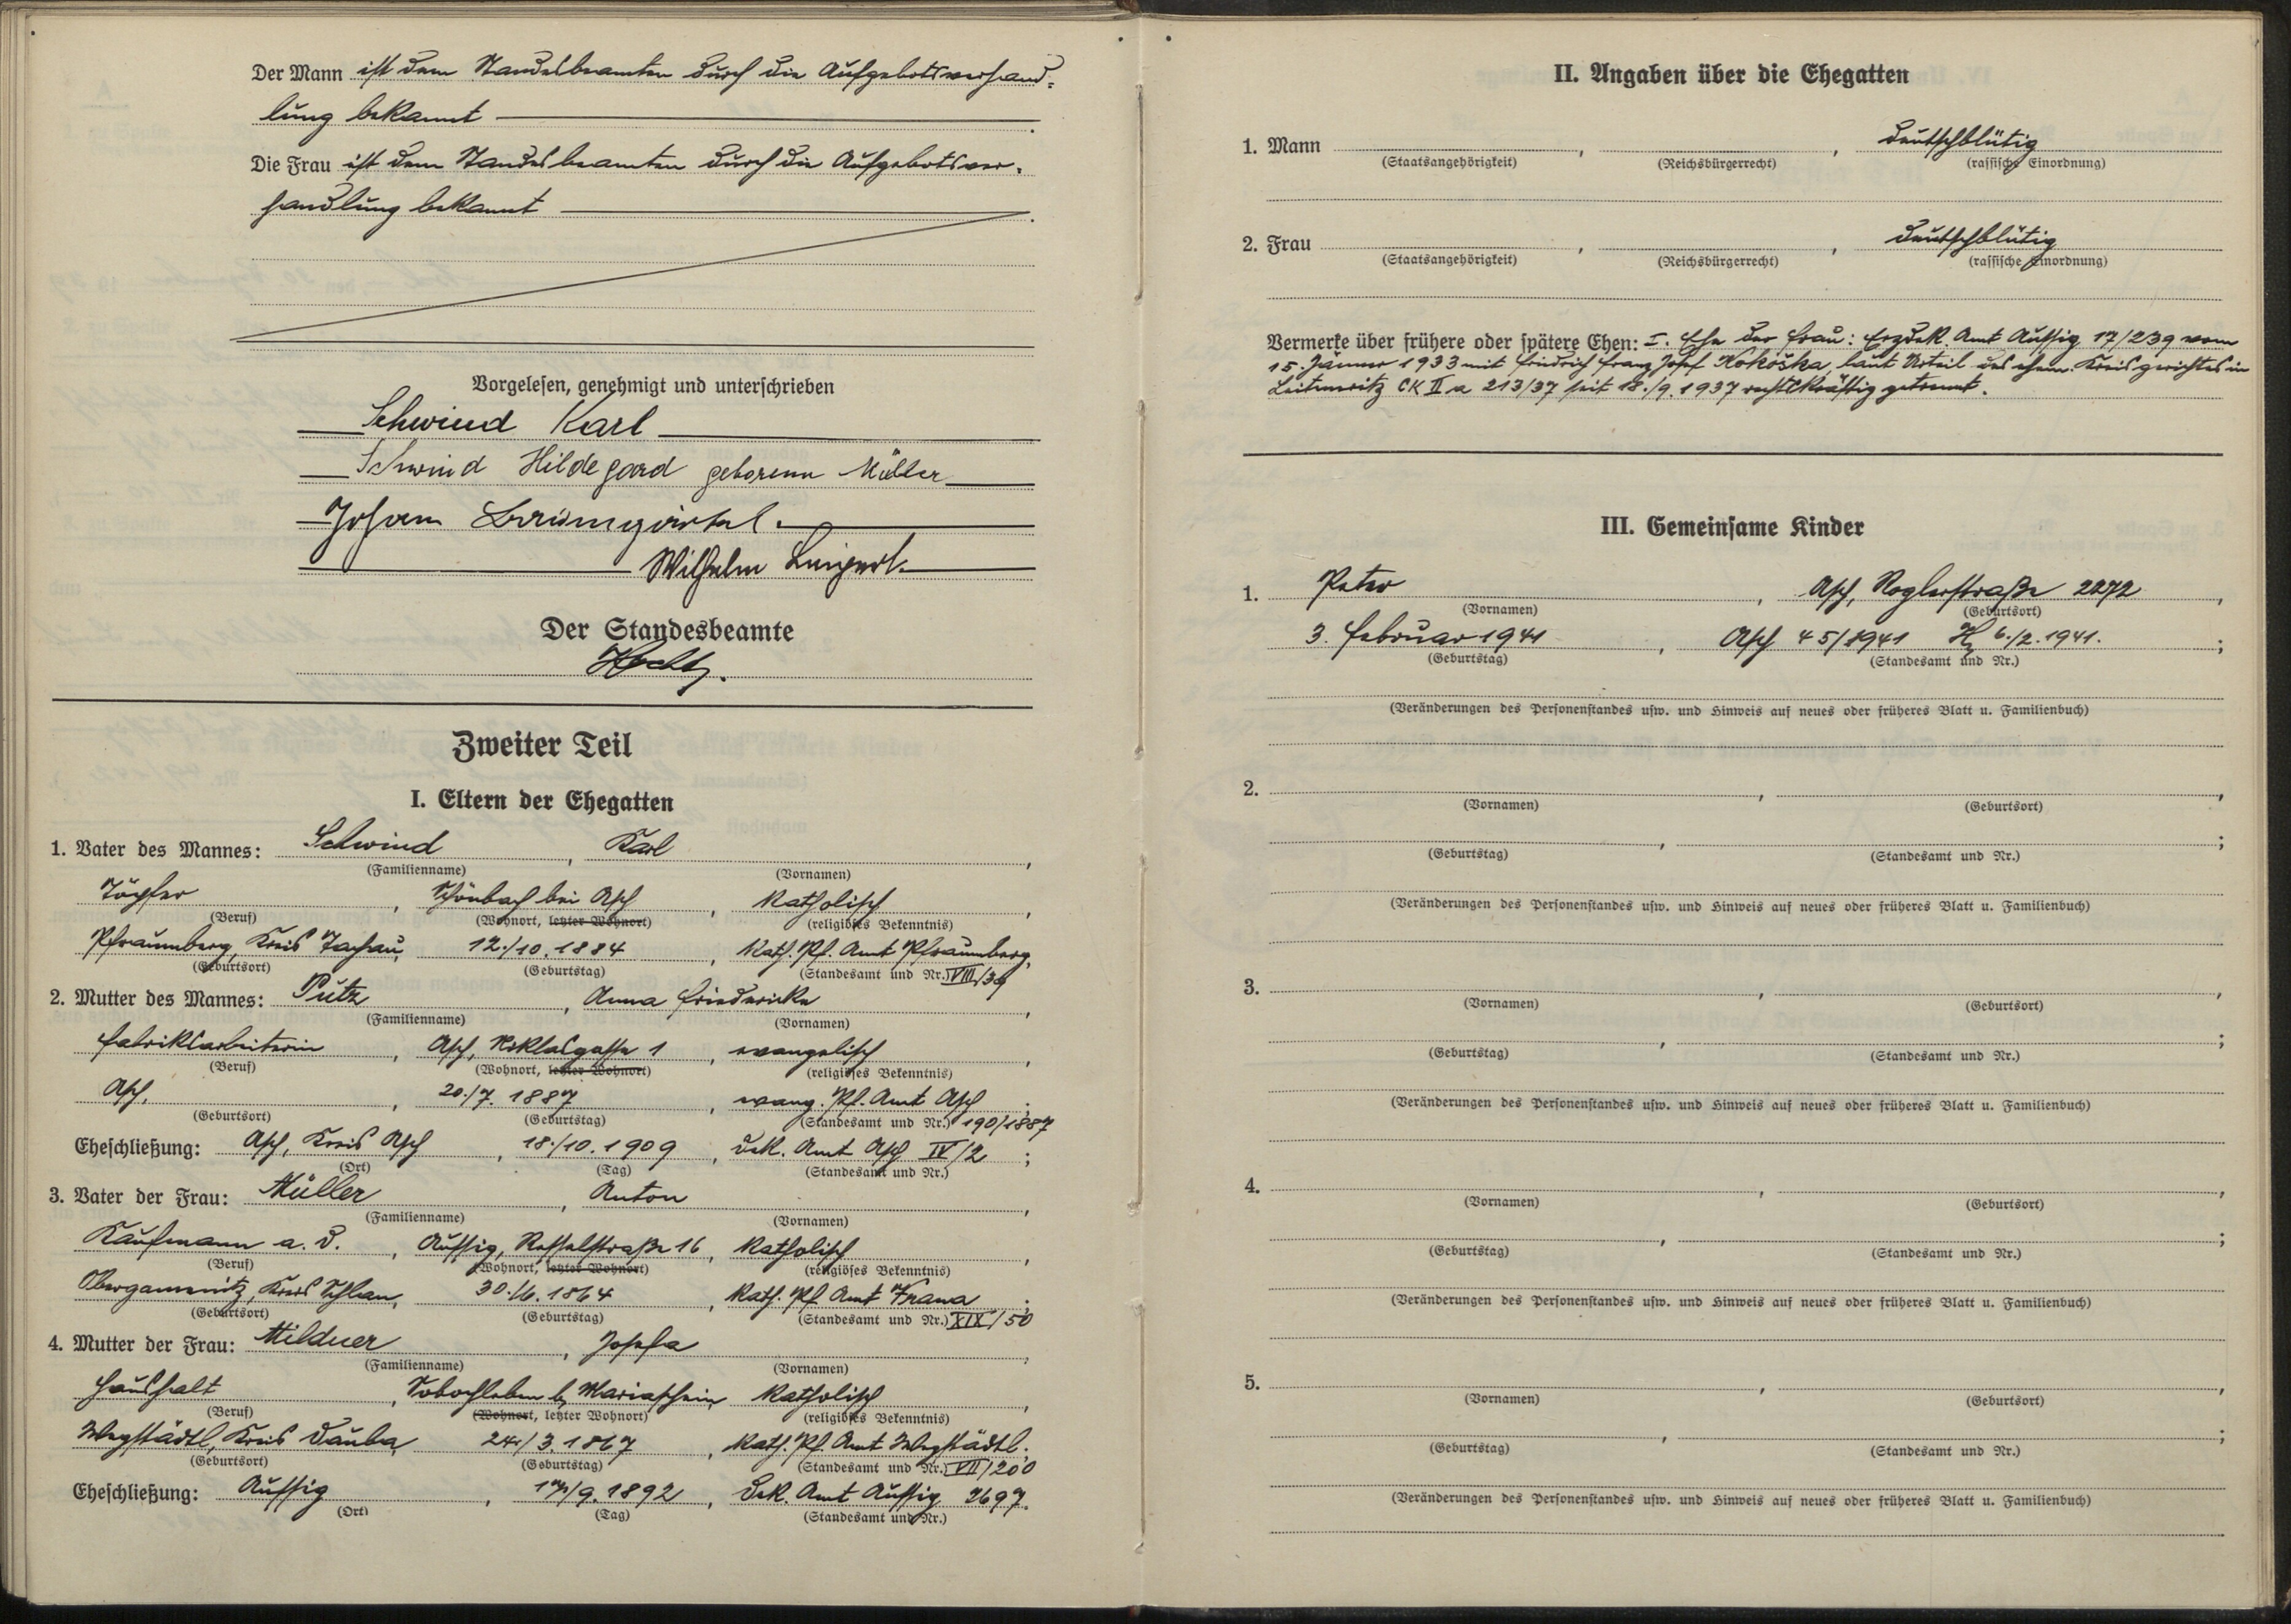 Der Mann ist dem Standesbeamten durch die Aufgebotsverhand-
lung bekannt
Die Frau ist dem Standesbeamten durch die Aufgebotsver-
handlung bekannt
Vorgelesen, genehmigt und unterschrieben
Schwind Karl
Schwind Hildegard geborene Müller
Johann Baumgärtel.
Wilhelm
Der Standesbeamte
Zweiter Teil
I. Eltern der Ehegatten
1. Vater des Mannes: Schwind, Karl,
(Familienname) (Vornamen)
Töpfer, Schönbach bei Asch, katholisch,
(Beruf) (Wohnort, letzter Wohnort) (religiöses Bekenntnis)
Pfraumberg, Kreis Tachau, 12./10.1884, kath. Pf. Amt Pfraumberg,
(Geburtsort) (Geburtstag) (Standesamt und Nr.) VIII/39
2. Mutter des Mannes: Putz, Anna Friedericke,
(Familienname) (Vornamen)
Fabriksarbeiterin, Asch, Niklasgasse 1, evangelisch,
(Beruf) (Wohnort, letzter Wohnort) (religiöses Bekenntnis)
Asch, 20./7. 1887, evang. Pf. Amt Asch;
(Geburtsort) (Geburtstag) (Standesamt und Nr.) 190/1887
Eheschließung: Asch, Kreis Asch, 18./10.1909, Dek. Amt Asch IV/2;
(Ort) (Tag) (Standesamt und Nr.)
3. Vater der Frau: Müller, Anton,
(Familienname) (Vornamen)
Kaufmann a. D., Aussig, Resselstraße 16, katholisch,
(Beruf) (Wohnort, letzter Wohnort) (religiöses Bekenntnis)
Obergamenitz, Kreis Schlan, 30./6. 1864, kath. Pf Amt;
(Geburtsort) (Geburtstag) (Standesamt und Nr.) XIX/50
4. Mutter der Frau: Mildner, Josefa,
(Familienname) (Vornamen)
Haushalt, Sobochleben b. Mariaschein, katholisch,
(Beruf) (Wohnort, letzter Wohnort) (religiöses Bekenntnis)
Wegstädtl, Kreis Dauba, 24./3.1867, kath. Pf Amt Wegstädtl;
(Geburtsort) (Geburtstag) (Standesamt und Nr.) VII/200
Eheschließung: Aussig, 17./9.1892, Dek. Amt Aussig 2697.
(Ort) (Tag) (Standesamt und Nr.)
II. Angaben über die Ehegatten
1. Mann , , deutschblütig
(Staatsangehörigkeit) (Reichsbürgerrecht) (rassische Einordnung)
2. Frau , , deutschblütig
(Staatsangehörigkeit) (Reichsbürgerrecht) (rassische Einordnung)
Vermerke über frühere oder spätere Ehen: I. Ehe der Frau: Erzdek. Amt Aussig 17/239 vom
15. Jänner 1933 mit Friedrich Franz Josef Kokoška, laut Urteil des ehem. Kreisgerichtes in
Leitmeritz CK II a 213/37 seit 18./9.1937 rechtskräftig getrennt.
III. Gemeinsame Kinder
1. Peter, Asch, Roglerstraße 2272,
(Vornamen) (Geburtsort)
3. Februar 1941, Asch 45/1941 6./2.1941.;
(Geburtstag) (Standesamt und Nr.)
(Veränderungen des Personenstandes usw. und Hinweis auf neues oder früheres Blatt u. Familienbuch)
2. , ,
(Vornamen) (Geburtsort)
, ;
(Geburtstag) (Standesamt und Nr.)
(Veränderungen des Personenstandes usw. und Hinweis auf neues oder früheres Blatt u. Familienbuch)
3. , ,
(Vornamen) (Geburtsort)
, ;
(Geburtstag) (Standesamt und Nr.)
(Veränderungen des Personenstandes usw. und Hinweis auf neues oder früheres Blatt u. Familienbuch)
4. , ,
(Vornamen) (Geburtsort)
, ;
(Geburtstag) (Standesamt und Nr.)
(Veränderungen des Personenstandes usw. und Hinweis auf neues oder früheres Blatt u. Familienbuch)
5. , ,
(Vornamen) (Geburtsort)
, ;
(Geburtstag) (Standesamt und Nr.)
(Veränderungen des Personenstandes usw. und Hinweis auf neues oder früheres Blatt u. Familienbuch)